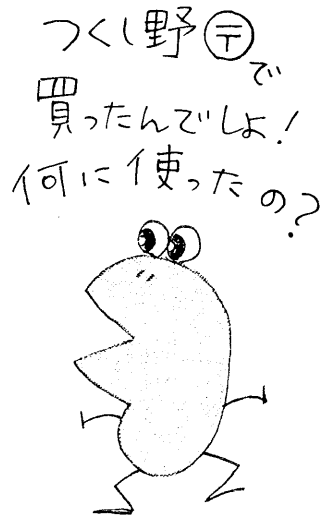 つくし野〶で
買ったんでしょ!
何に使ったの?